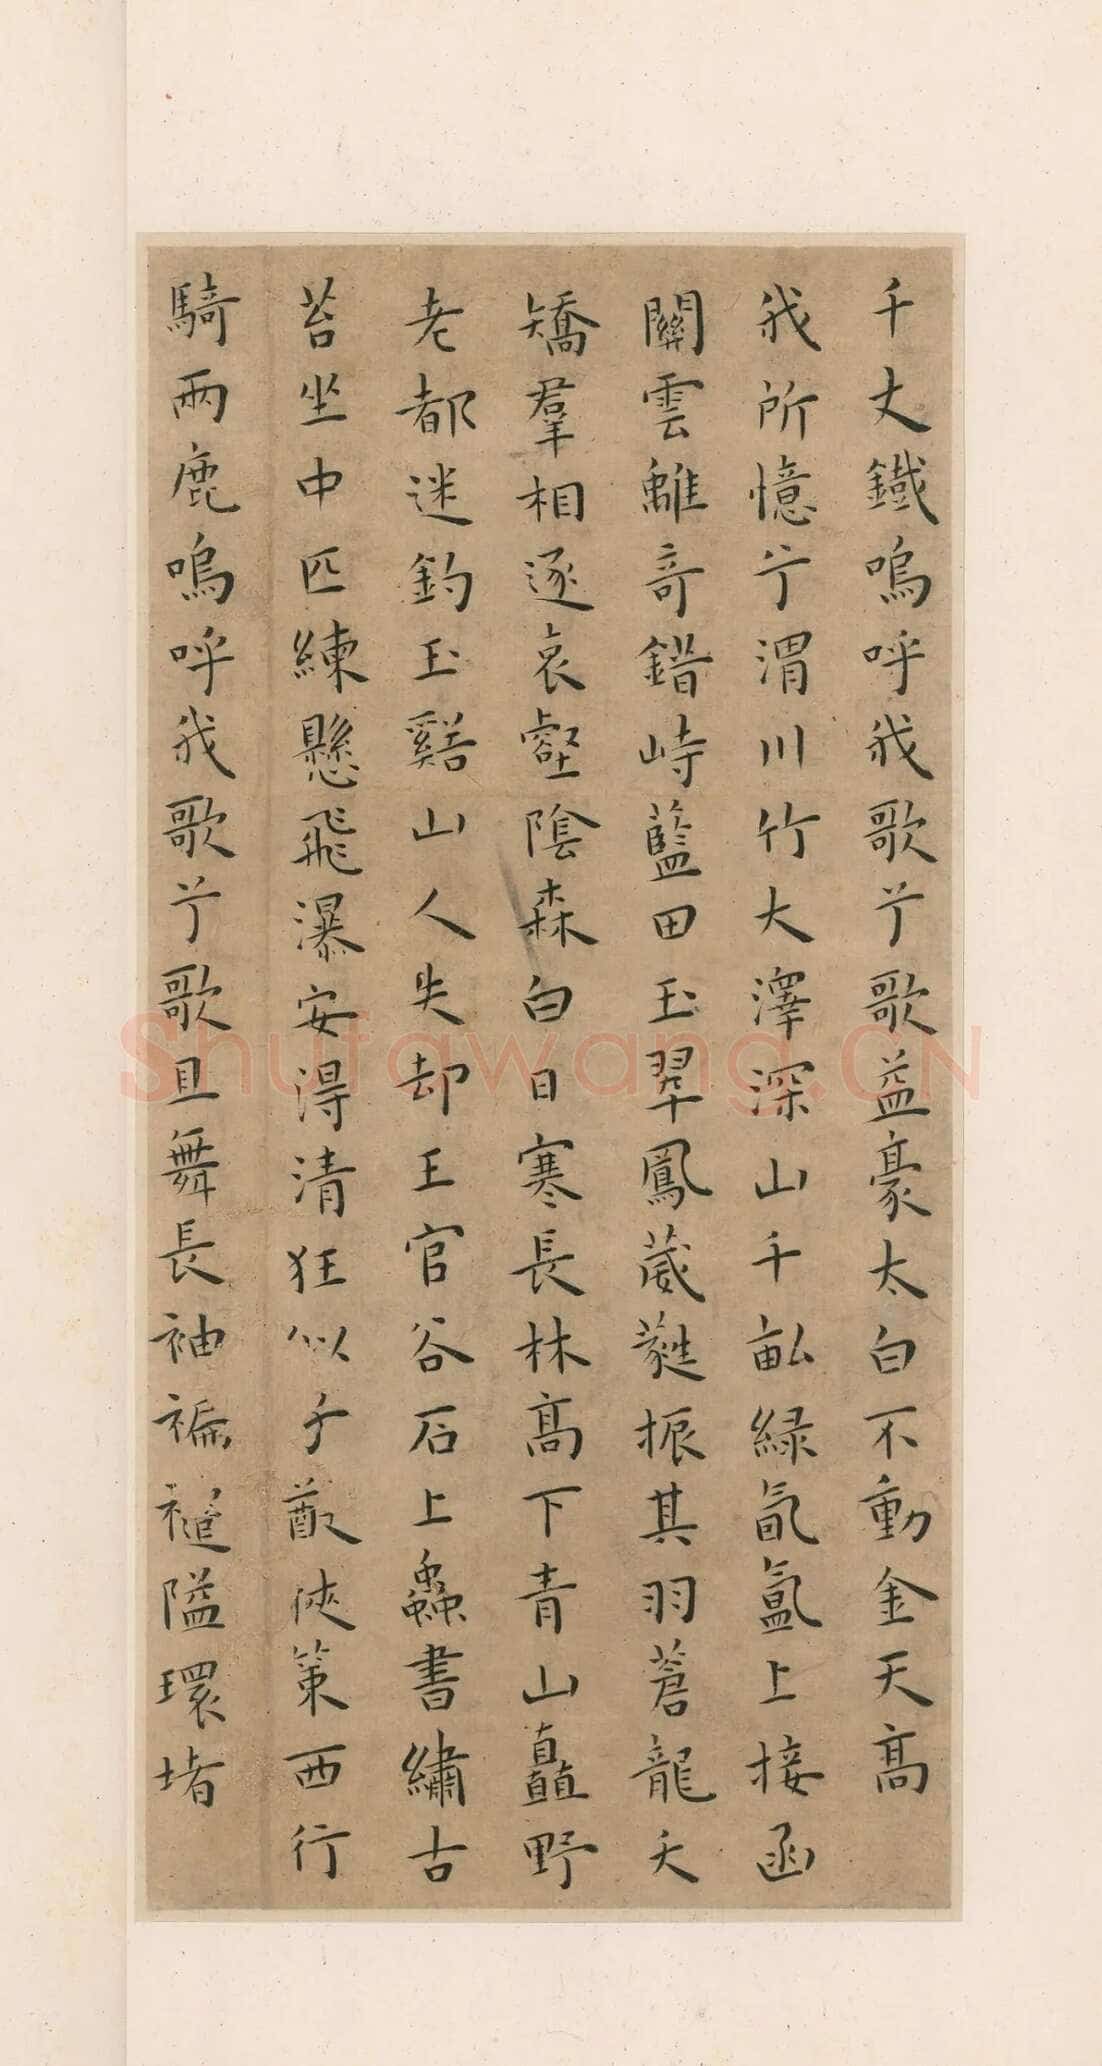 千丈鐵嗚呼我歌兮歌益豪太白不動金天高
我所憶兮渭川竹大澤深山千畝綠氤氳上接函
關雲離奇錯峙藍田玉翠鳳葳蕤振其羽蒼龍夭
矯羣相逐哀壑陰森白日寒長林高下青山矗野
老都迷釣玉谿山人失却王官谷石上蟲書繡古
苔坐中匹練懸飛瀑安得清狂似子猷俠策西行
騎兩鹿嗚呼我歌兮歌且舞長袖褊褼隘環堵
Shufawang.CN